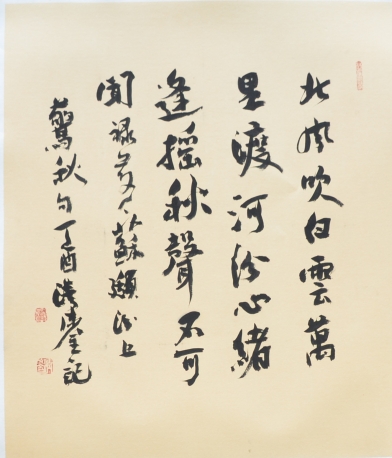 北風吹白雲萬
里渡河汾心緒
逢摇秋聲不可
聞録人蘇頲汾上
驚秋句丁酉記